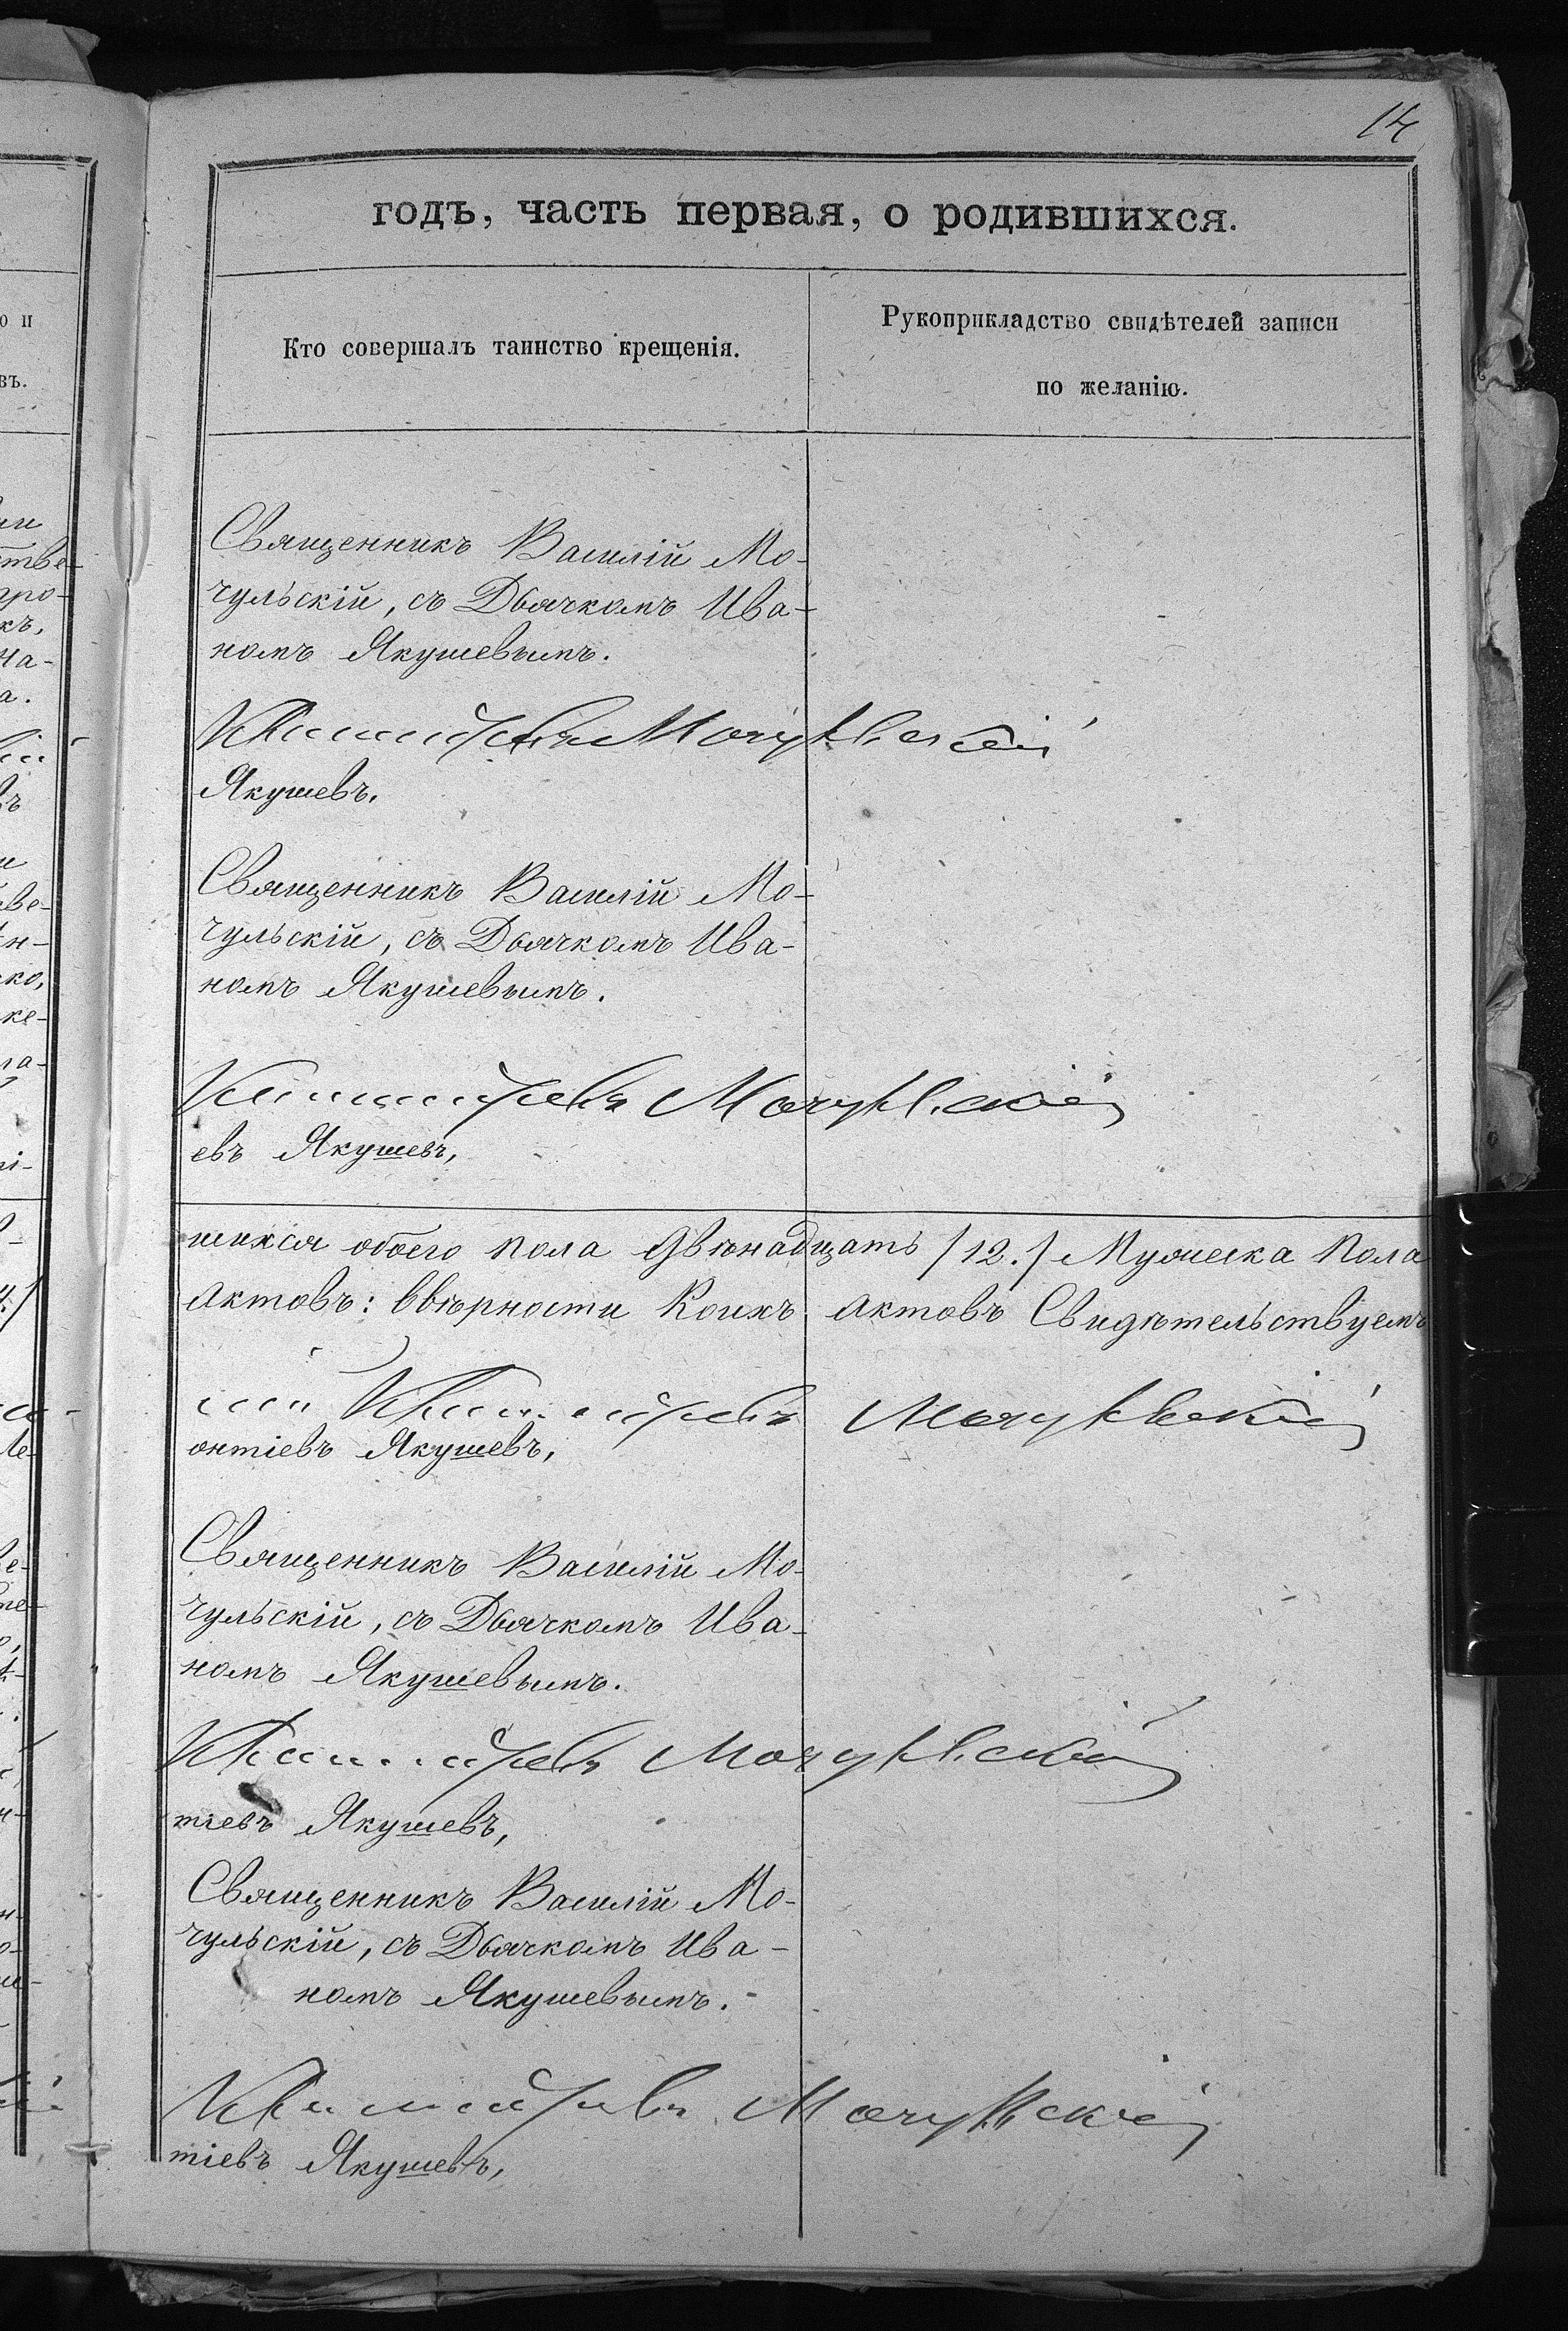 14
годъ, часть первая, о родившихся.
Кто совершалъ таинство крещенія.
Рукоприкладство свидѣтелей записи
по желанію.
Священникъ Василій Мо-
чульскій, съ Дьячкомъ Ива-
номъ Якушевымъ.
Мочульскій
Якушевъ.
Священникъ Василій Мо-
чульскій, съ Дьячкомъ Ива-
номъ Якушевымъ.
Мочульскій
евъ Якушевъ,
шихся обоего пола двѣнадцать /12./ Мужеска пола
Актовъ: ввѣрности коихъ Актовъ Свидѣтельствуемъ
Мочульскій
онтіевъ Якушевъ,
Священникъ Василій Мо-
чульскій, съ Дьячкомъ Ива-
номъ Якушевымъ.
Мочульскій
тіевъ Якушевъ,
Священникъ Василій Мо-
чульскій, съ Дьячкомъ Ива-
номъ Якушевымъ.
Мочульскій
тіевъ Якушевъ,